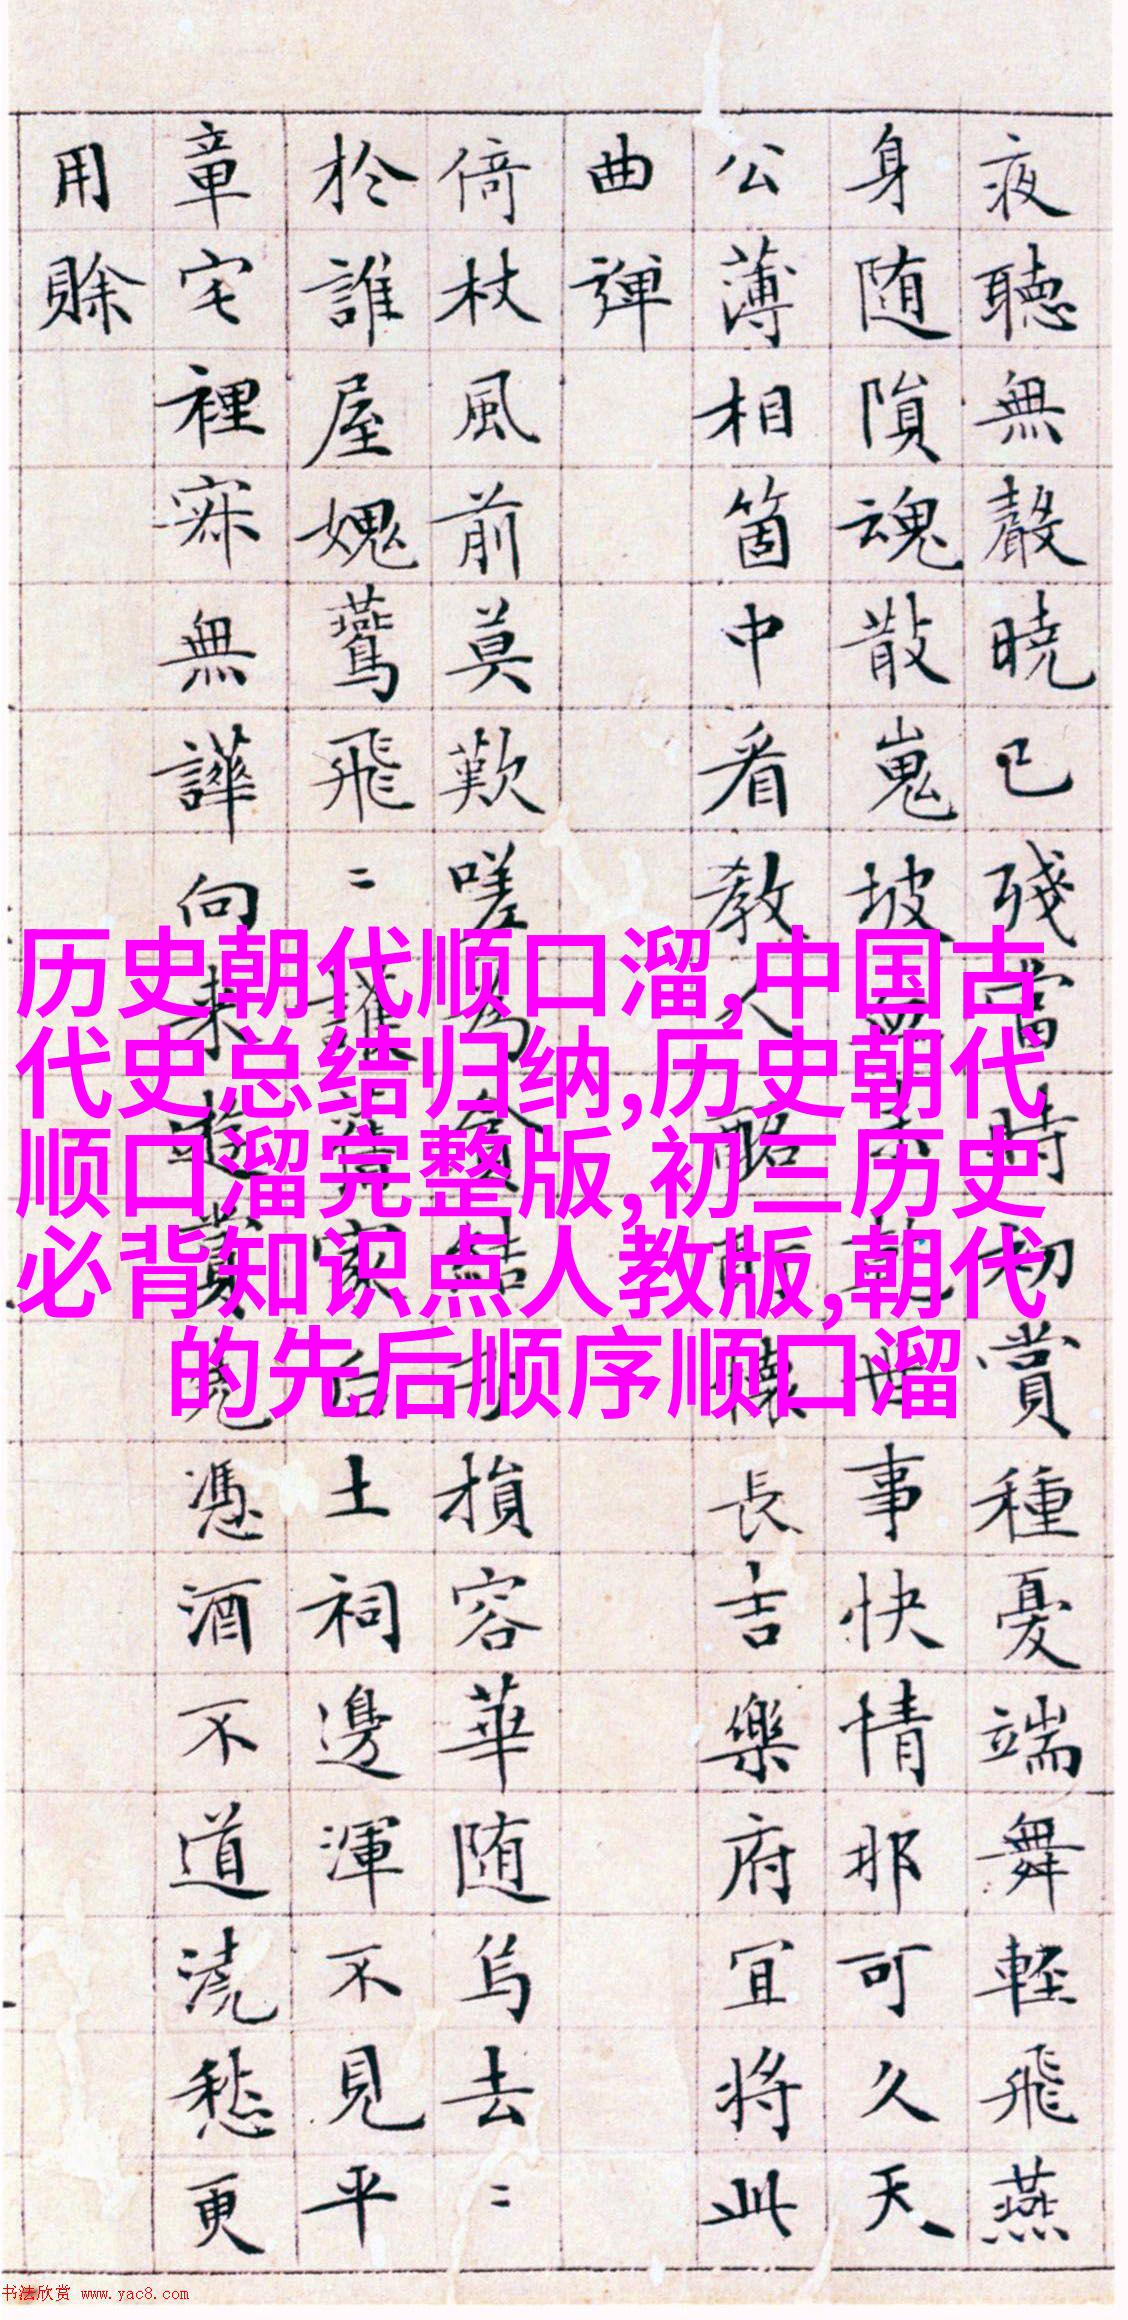 夜聽無聲曉已殘當時初賞種憂端舞輕飛燕
身随隕魂散嵬坡未乾世事快情那可久天
公薄相箇中看教人略樣長吉樂府宜將此
曲彈
倚杖風前莫歎嗟為結子損容華随烏去〻
於誰屋媿鸎飛〻護舊家后土祠邊渾不見平
章宅裡寂無譁向来遊賞憑酒不道澆愁更
用賒
历史朝代顺口溜,中国古
代史总结归纳,历史朝代
顺口溜完整版,初三历史
必背知识点人教版,朝代
的先后顺序顺口溜
书法欣赏 www.yac8.com